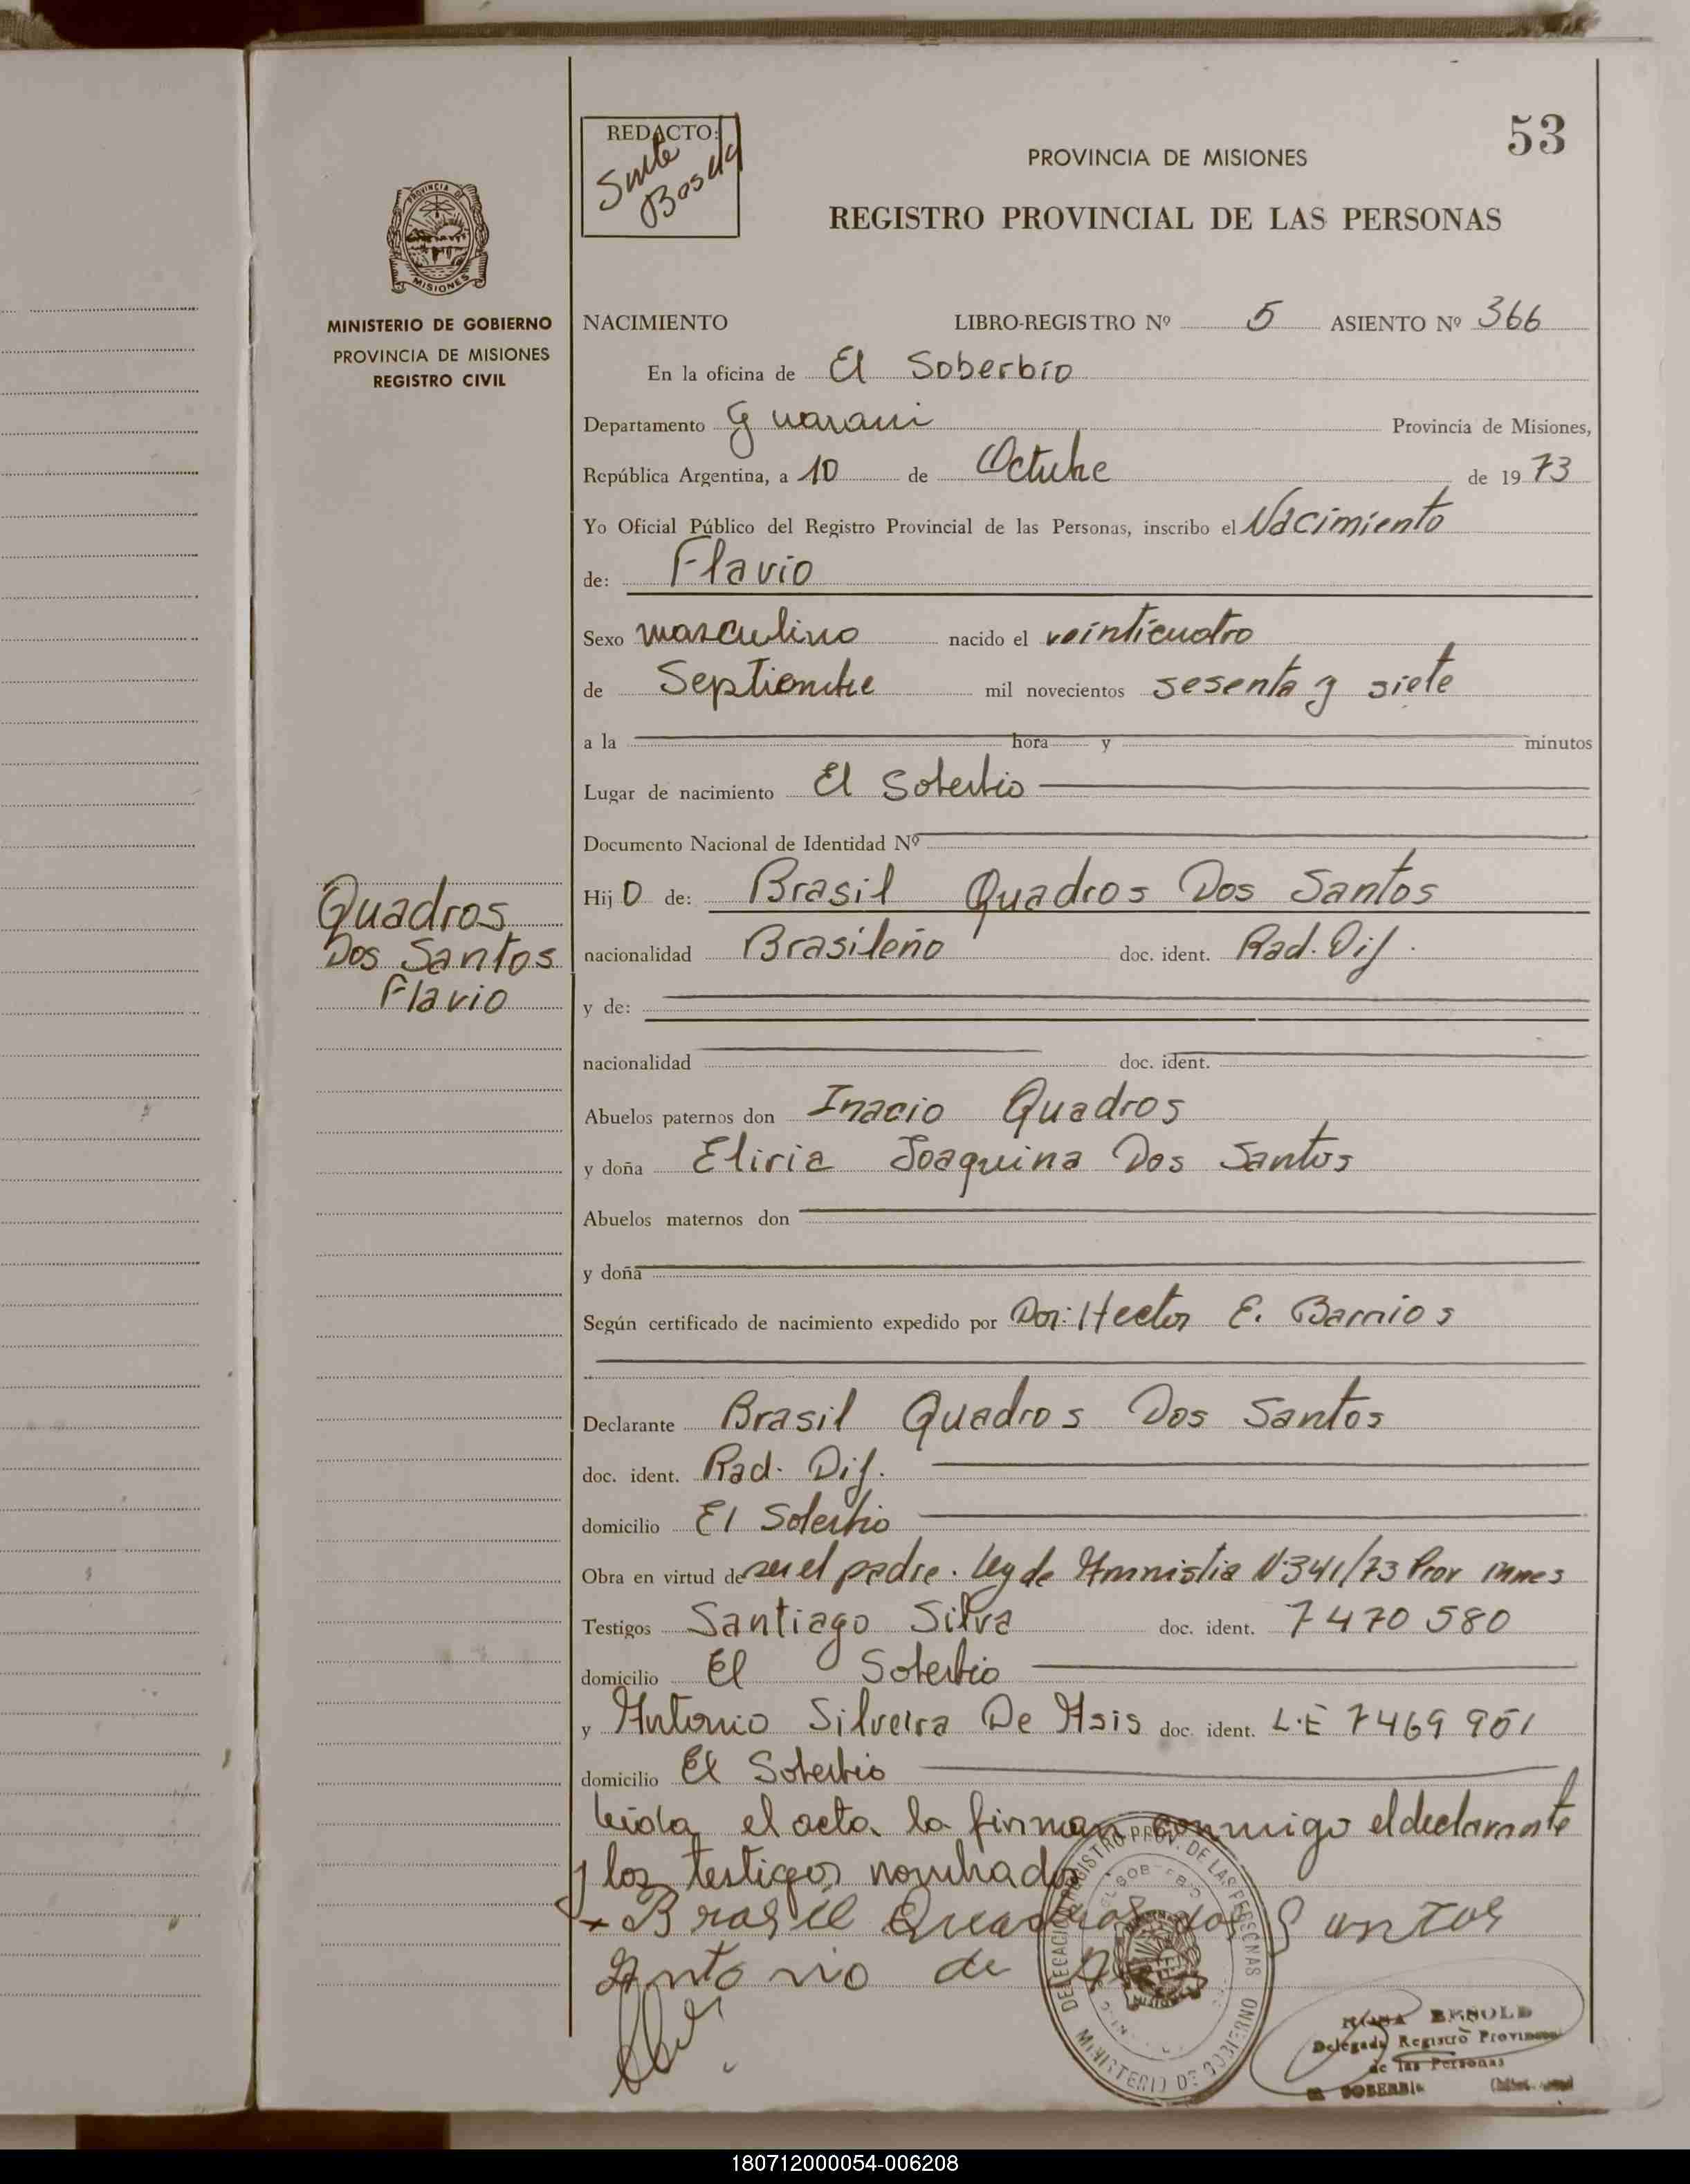 53
REDACTO:
PROVINCIA DE MISIONES
REGISTRO PROVINCIAL DE LAS PERSONAS
PROVINCIA DE
MISIONES
MINISTERIO DE GOBIERNO
PROVINCIA DE MISIONES
REGISTRO CIVIL
NACIMIENTO LIBRO-REGISTRO Nº 5 ASIENTO Nº 366
En la oficina de El Soberbio
Departamento Guarani Provincia de Misiones,
República Argentina, a 10 de Octubre de 1973
Yo Oficial Público del Registro Provincial de las Personas, inscribo el Nacimiento
de: Flavio
Sexo masculino nacido el veinticuatro
de Septiembre mil novecientos sesenta y siete
a la hora y minutos
Lugar de nacimiento El Soberbio
Documento Nacional de Identidad Nº
Hijo de: Brasil Quadros Dos Santos
nacionalidad Brasileño doc. ident. Rad. Dif.
Quadros
Dos Santos
Flavio
y de:
nacionalidad doc. ident.
Abuelos paternos don Inacio Quadros
y doña Eliria Joaquina Dos Santos
Abuelos maternos don
y doña
Según certificado de nacimiento expedido por Dor: Hector E. Barrios
Declarante Brasil Quadros Dos Santos
doc. ident. Rad. Dif.
domicilio El Soberbio
Obra en virtud de ser el padre. Ley de Amnistia N·341/73 Prov Mnes
Testigos Santiago Silva doc. ident. 7470580
domicilio El Soberbio
y Antonio Silveira De Asis doc. ident. L.E 7469951
domicilio El Soberbio
leida el acta la firman conmigo el declarante
y los testigos nombrados
Brasil Quadros dos Santos
Antonio de
DELEGACION REGISTRO PROV. DE LAS PERSONAS
MINISTERIO DE GOBIERNO
ROSA BESOLD
Delegada Registro Provincial
de las Personas
EL SOBERBIO
180712000054-006208